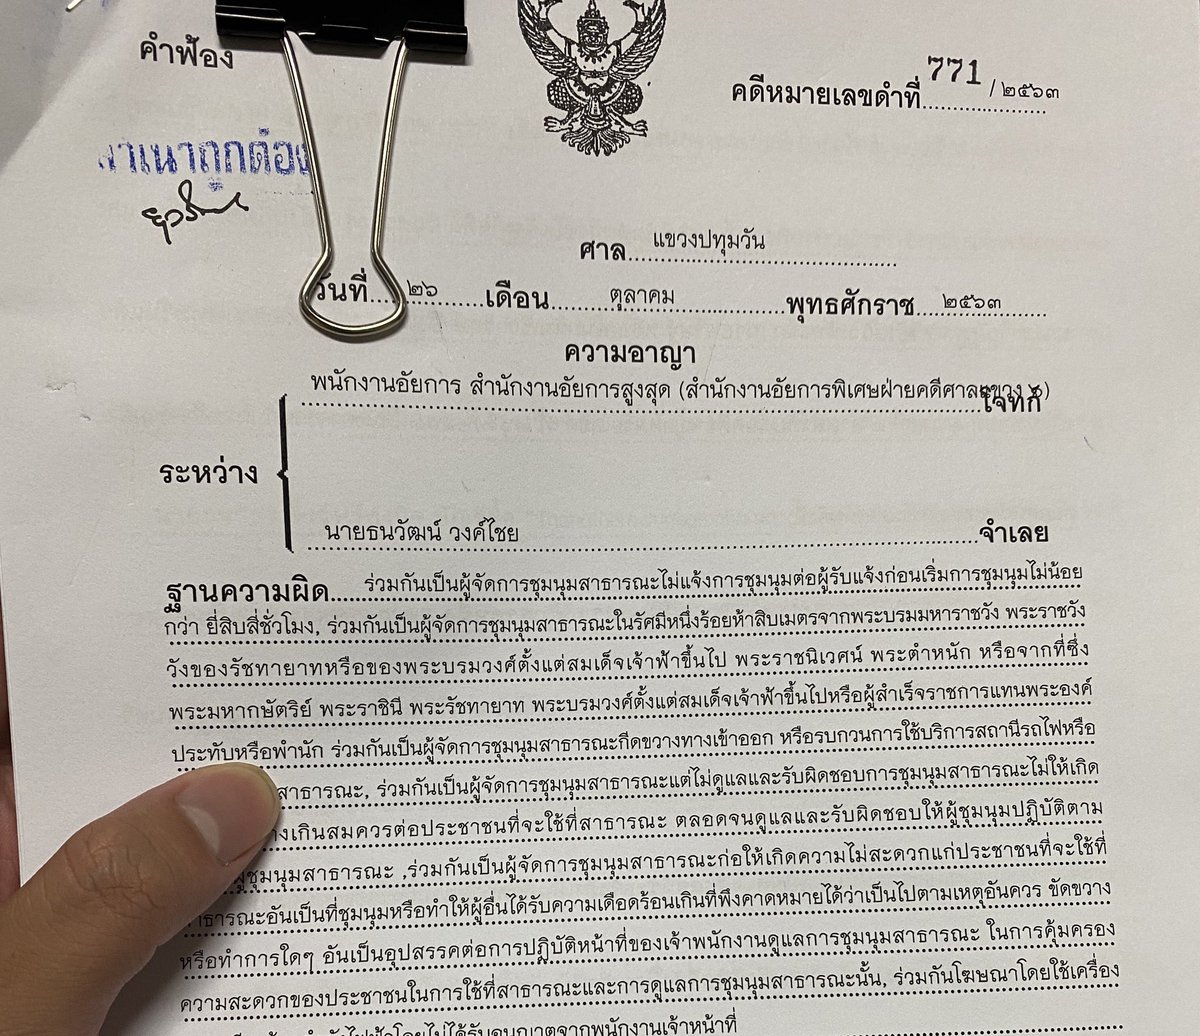 คำฟ้อง
คดีหมายเลขดำที่ 771 / ๒๕๖๓
สำเนาถูกต้อง
ศาล แขวงปทุมวัน
วันที่ ๒๖ เดือน ตุลาคม พุทธศักราช ๒๕๖๓
ความอาญา
พนักงานอัยการ สำนักงานอัยการสูงสุด (สำนักงานอัยการพิเศษฝ่ายคดีศาลแขวง ๖) โจทก์
ระหว่าง
นายธนวัฒน์ วงค์ไชย จำเลย
ฐานความผิด ร่วมกันเป็นผู้จัดการชุมนุมสาธารณะไม่แจ้งการชุมนุมต่อผู้รับแจ้งก่อนเริ่มการชุมนุมไม่น้อย
กว่า ยี่สิบสี่ชั่วโมง, ร่วมกันเป็นผู้จัดการชุมนุมสาธารณะในรัศมีหนึ่งร้อยห้าสิบเมตรจากพระบรมมหาราชวัง พระราชวัง
วังของรัชทายาทหรือของพระบรมวงศ์ตั้งแต่สมเด็จเจ้าฟ้าขึ้นไป พระราชนิเวศน์ พระตำหนัก หรือจากที่ซึ่ง
พระมหากษัตริย์ พระราชินี พระรัชทายาท พระบรมวงศ์ตั้งแต่สมเด็จเจ้าฟ้าขึ้นไปหรือผู้สำเร็จราชการแทนพระองค์
ประทับหรือพำนัก ร่วมกันเป็นผู้จัดการชุมนุมสาธารณะกีดขวางทางเข้าออก หรือรบกวนการใช้บริการสถานีรถไฟหรือ
สาธารณะ, ร่วมกันเป็นผู้จัดการชุมนุมสาธารณะแต่ไม่ดูแลและรับผิดชอบการชุมนุมสาธารณะไม่ให้เกิด
เกินสมควรต่อประชาชนที่จะใช้ที่สาธารณะ ตลอดจนดูแลและรับผิดชอบให้ผู้ชุมนุมปฏิบัติตาม
ผู้ชุมนุมสาธารณะ ,ร่วมกันเป็นผู้จัดการชุมนุมสาธารณะก่อให้เกิดความไม่สะดวกแก่ประชาชนที่จะใช้ที่
สาธารณะอันเป็นที่ชุมนุมหรือทำให้ผู้อื่นได้รับความเดือดร้อนเกินที่พึงคาดหมายได้ว่าเป็นไปตามเหตุอันควร ขัดขวาง
หรือทำการใดๆ อันเป็นอุปสรรคต่อการปฏิบัติหน้าที่ของเจ้าพนักงานดูแลการชุมนุมสาธารณะ ในการคุ้มครอง
ความสะดวกของประชาชนในการใช้ที่สาธารณะและการดูแลการชุมนุมสาธารณะนั้น, ร่วมกันโฆษณาโดยใช้เครื่อง
โดยไม่ได้รับอนุญาตจากพนักงานเจ้าหน้าที่